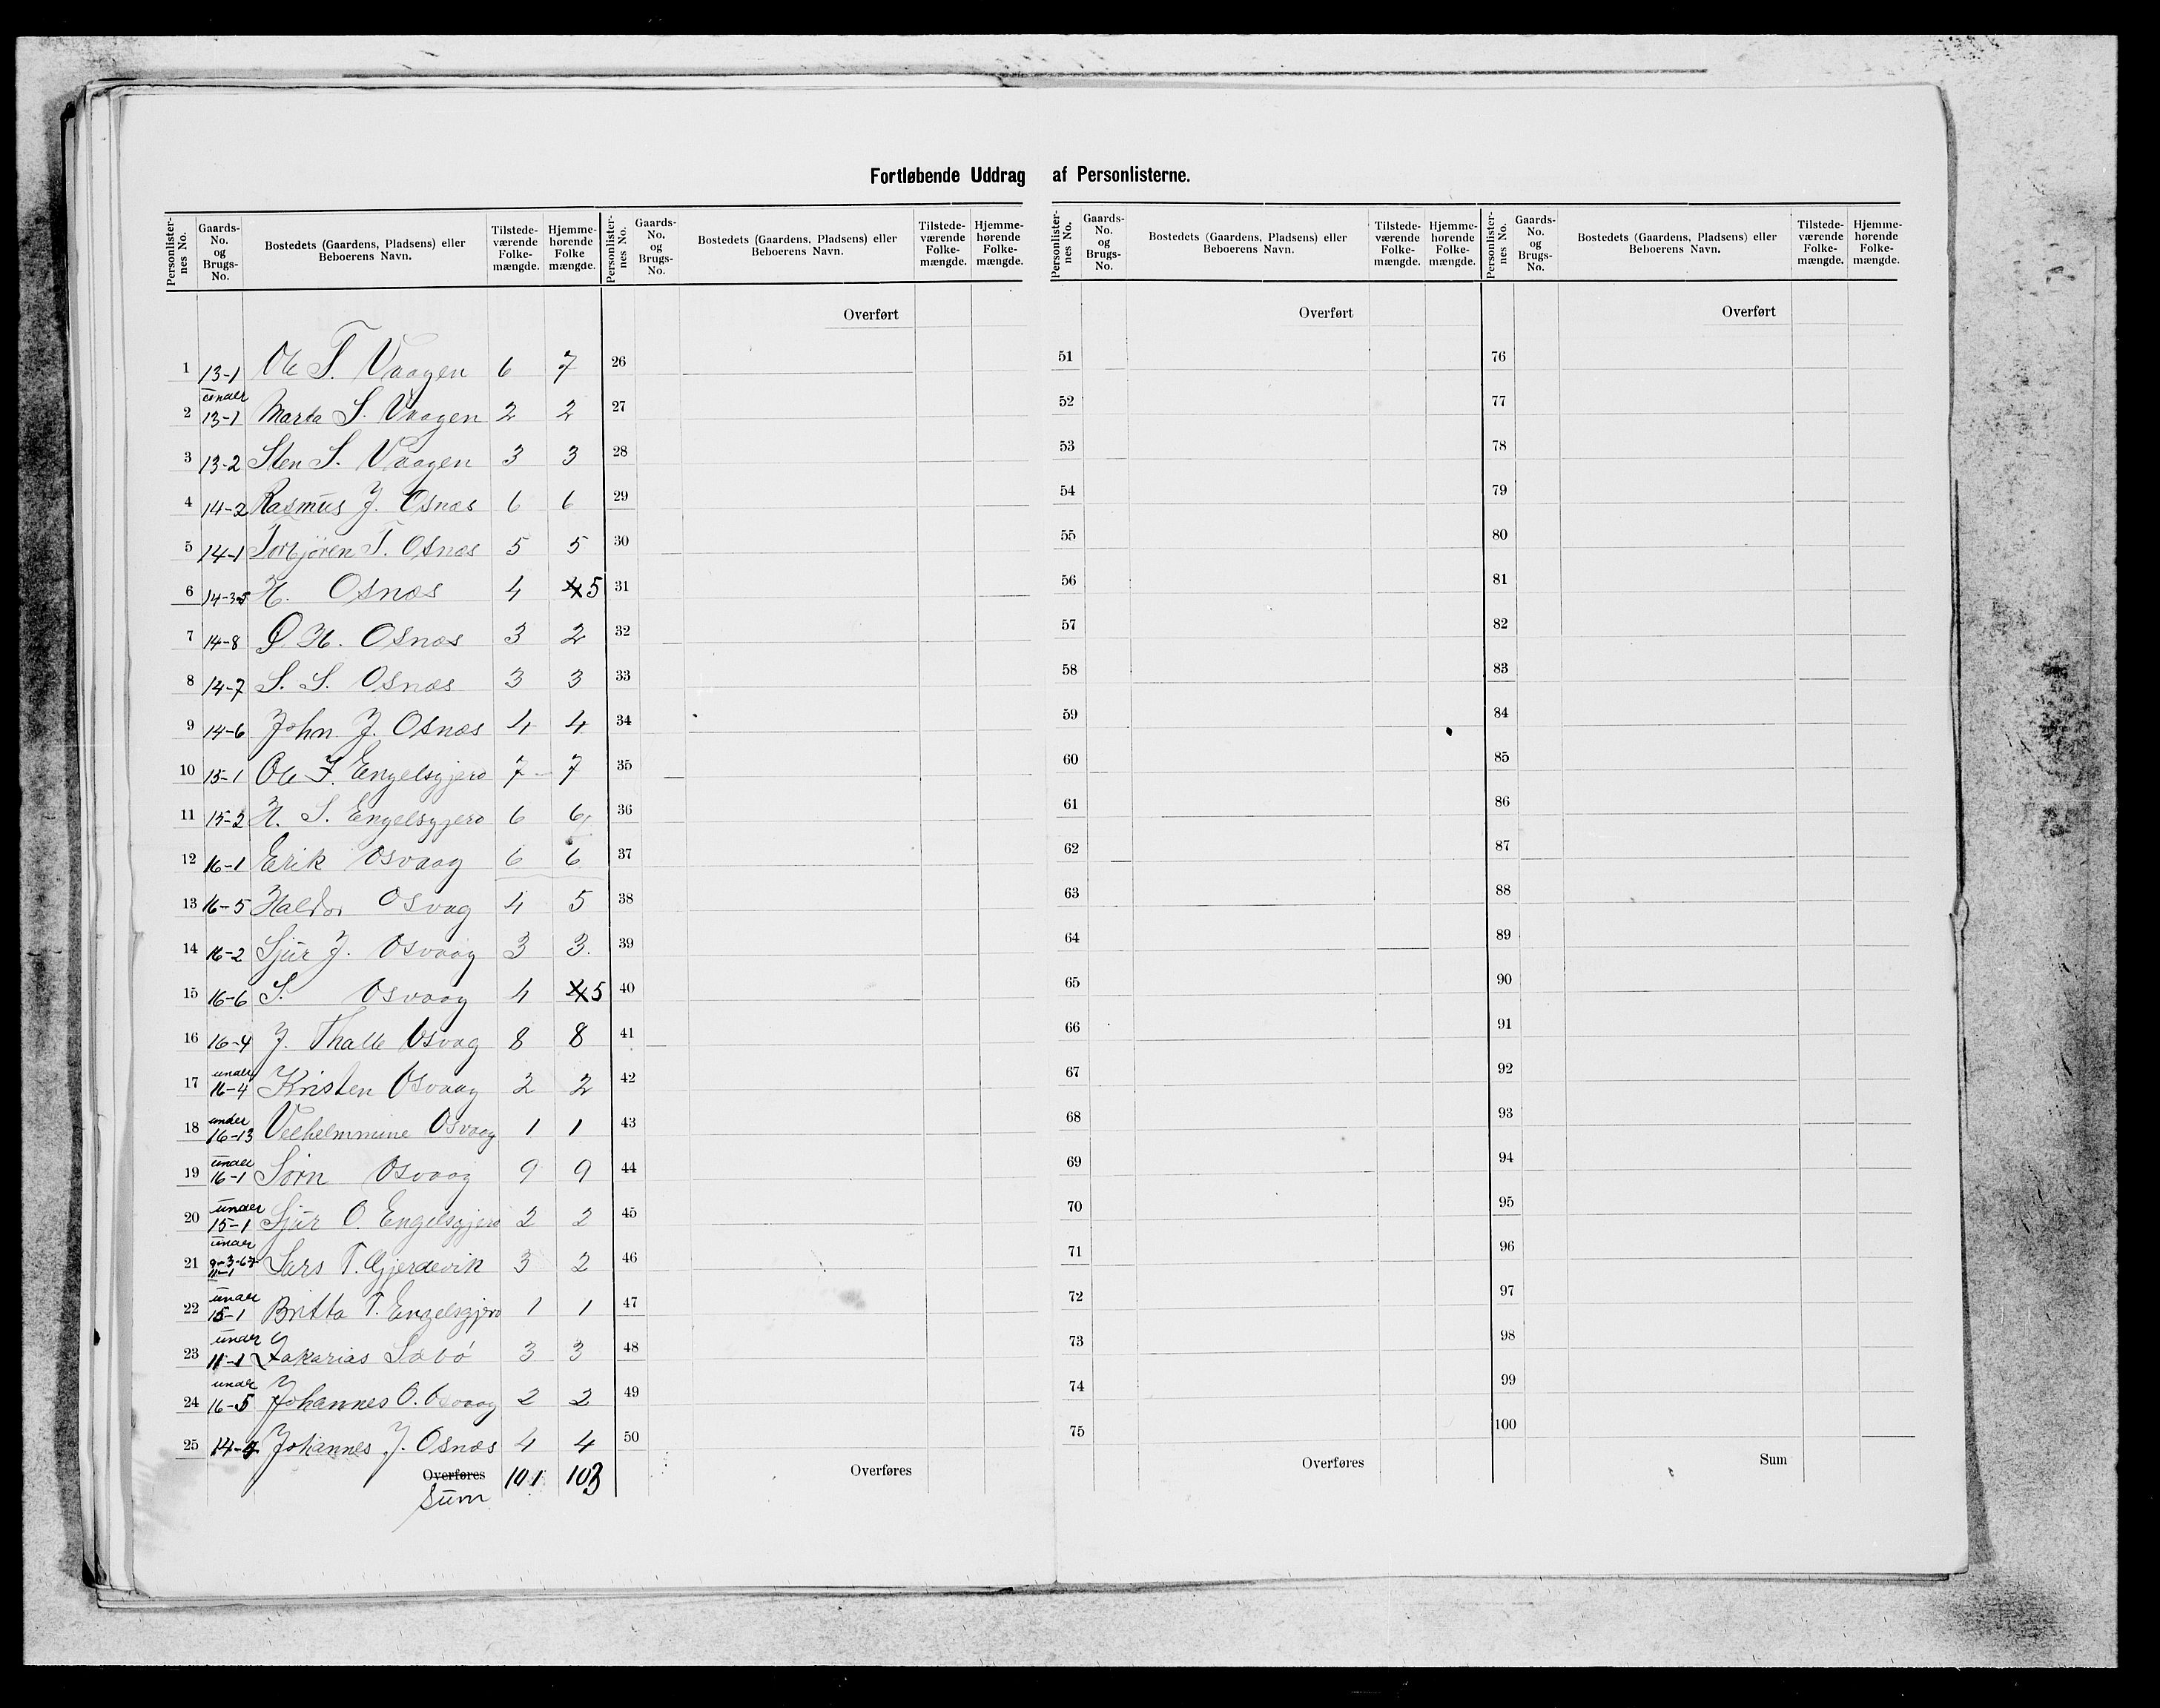 Fortløbende Uddrag af Personlisterne.
Personlister-nes No. Gaards-No. og Brugs-No. Bostedets (Gaardens, Pladsens) eller Beboerens Navn. Tilstede-værende Folke-mængde. Hjemme-hørende Folke mængde. Personlister-nes No. Gaards-No. og Brugs-No. Bostedets (Gaardens, Pladsens) eller Beboerens Navn. Tilstede-værende Folke-mængde. Hjemme-hørende Folke-mængde. Personlister-nes No. Gaards-No. og Brugs-No. Bostedets (Gaardens, Pladsens) eller Beboerens Navn. Tilstede-værende Folke-mængde. Hjemme-hørende Folke-mængde. Personlister-nes No. Gaards-No. og Brugs-No. Bostedets (Gaardens, Pladsens) eller Beboerens Navn. Tilstede-værende Folke-mængde. Hjemme-hørende Folke-mængde.
Overført Overført Overført
1 13-1 Ole T. Vaagen 6 7 26 51 76
2 under 13-1 Marta S. Vaagen 2 2 27 52 77
3 13-2 Sten S. Vaagen 3 3 28 53 78
4 14-2 Rasmus J. Osnæs 6 6 29 54 79
5 14-1 Torbjören T. Osnæs 5 5 30 55 80
6 14-35 H. Osnæs 4 4 5 31 56 81
7 14-8 O H. Osnæs 3 2 32 57 82
8 14-7 S. S. Osnæs 3 3 33 58 83
9 14-6 John J. Osnæs 4 4 34 59 84
10 15-1 Ole J. Engelsgjerd 7 7 35 60 85
11 15-2 H. S. Engelsgjerd 6 6 36 61 86
12 16-1 Erik Osvaag 6 6 37 62 87
13 16-5 Haldor Osvag 4 5 38 63 88
14 16-2 Sjur J. Osvaag 3 3. 39 64 89
15 16-6 S. Osvaag 4 4 5 40 65 90
16 16-4 J. Thalle Osvag 8 8 41 66 91
17 under 16-4 Kristen Osvaag 2 2 42 67 92
18 under 16-13 Velhelmmine Osvaag 1 1 43 68 93
19 under 16-1 Sörn Osvaag 9 9 44 69 94
20 under 15-1 Sjur O. Engelsgjerd 2 2 45 70 95
21 under 11-1 Lars T. Gjerdevik 3 2 46 71 96
22 under 15-1 Britta T. Engelsgjerd 1 1 47 72 97
23 under 11-1 Zakarias Sæbö 3 3 48 73 98
24 under 16-5 Johannes O. Osvaag 2 2 49 74 99
25 14-4 Johannes J. Osnæs 4 4 50 75 100
Overføres 101 103 Overføres Overføres Sum
Sum